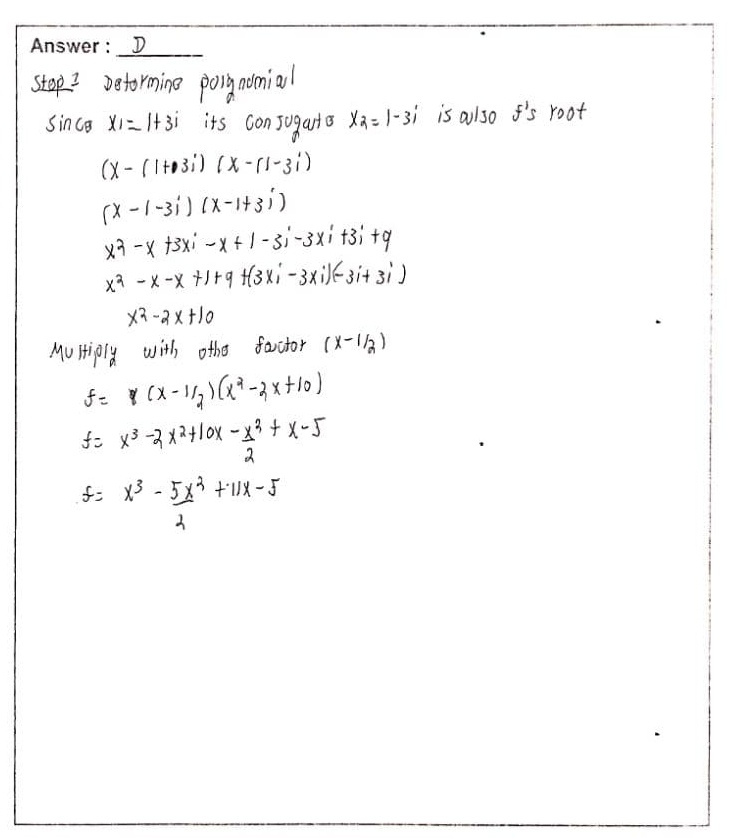 Answer : D
Step 1 Determine polynomial
Since x1 = 1+3i its conjugate x2 = 1-3i is also f's root
(x - (1+3i) (x - (1-3i)
(x -1-3i) (x-1+3i)
x² -x +3xi -x +1 -3i -3xi +3i +9
x² -x -x +1+9 +(3xi -3xi)(-3i+3i)
x² -2x+10
Multiply with othe factor (x-1/2)
f= (x-1/2)(x²-2x+10)
f= x³ -2x²+10x - x²/2 + x-5
f= x³ - 5x²/2 + 11x -5